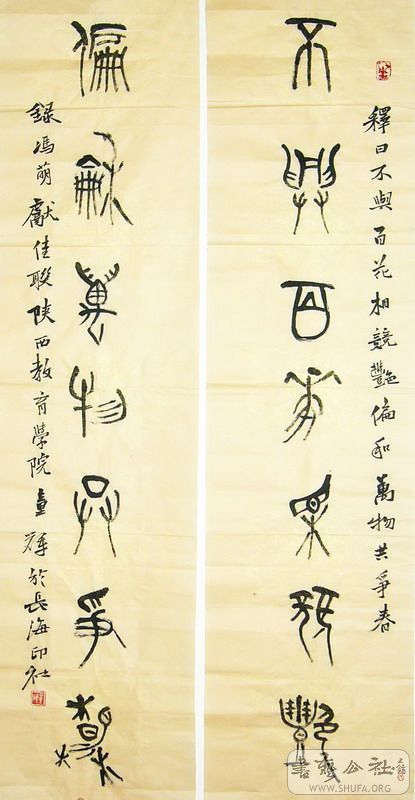 釋曰不與百花相競艷偏和萬物共爭春
不與百華相競艷
偏龢萬物共爭春
錄馮萌獻佳聯陝西教育學院童輝於長海印社
書藝公社
WWW.SHUFA.ORG